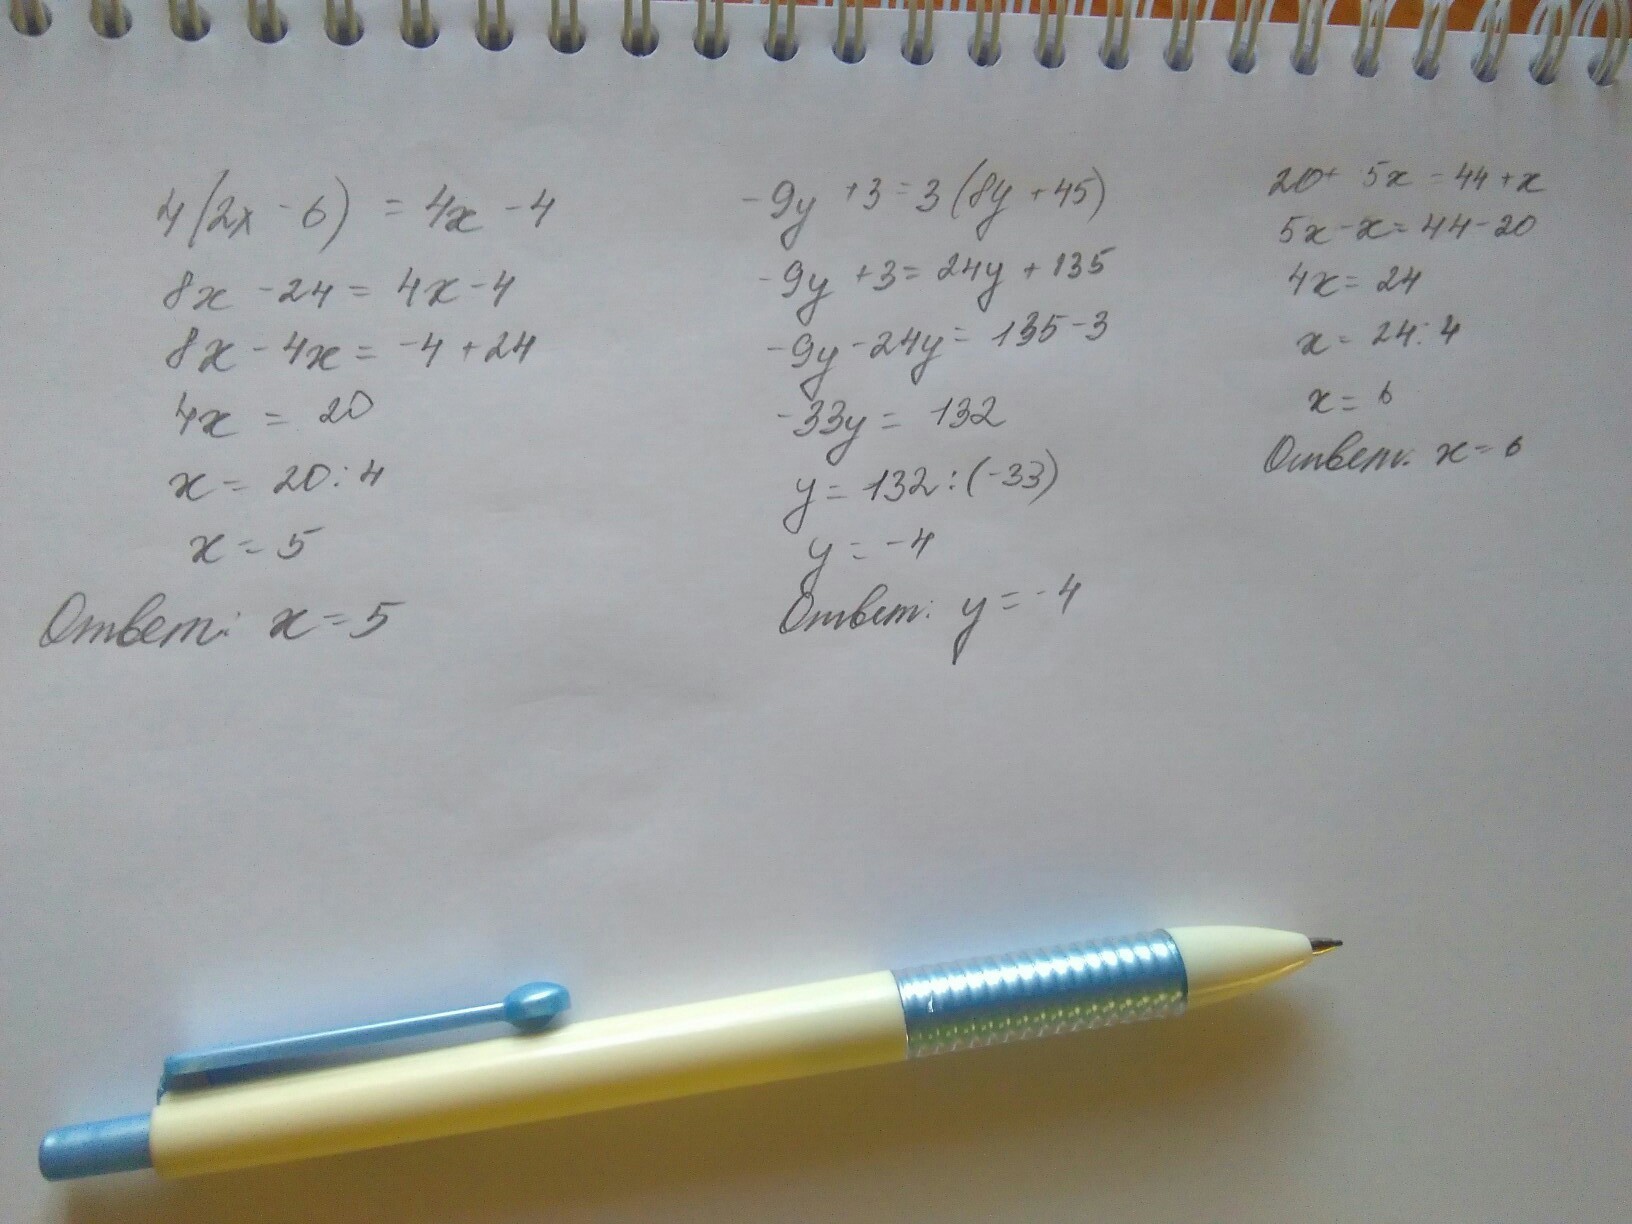 4(2x - 6) = 4x - 4
8x - 24 = 4x - 4
8x - 4x = -4 + 24
4x = 20
x = 20 : 4
x = 5
Ответ: x = 5
-9y + 3 = 3(8y + 45)
-9y + 3 = 24y + 135
-9y - 24y = 135 - 3
-33y = 132
y = 132 : (-33)
y = -4
Ответ: y = -4
20 + 5x = 44 + x
5x - x = 44 - 20
4x = 24
x = 24 : 4
x = 6
Ответ: x = 6